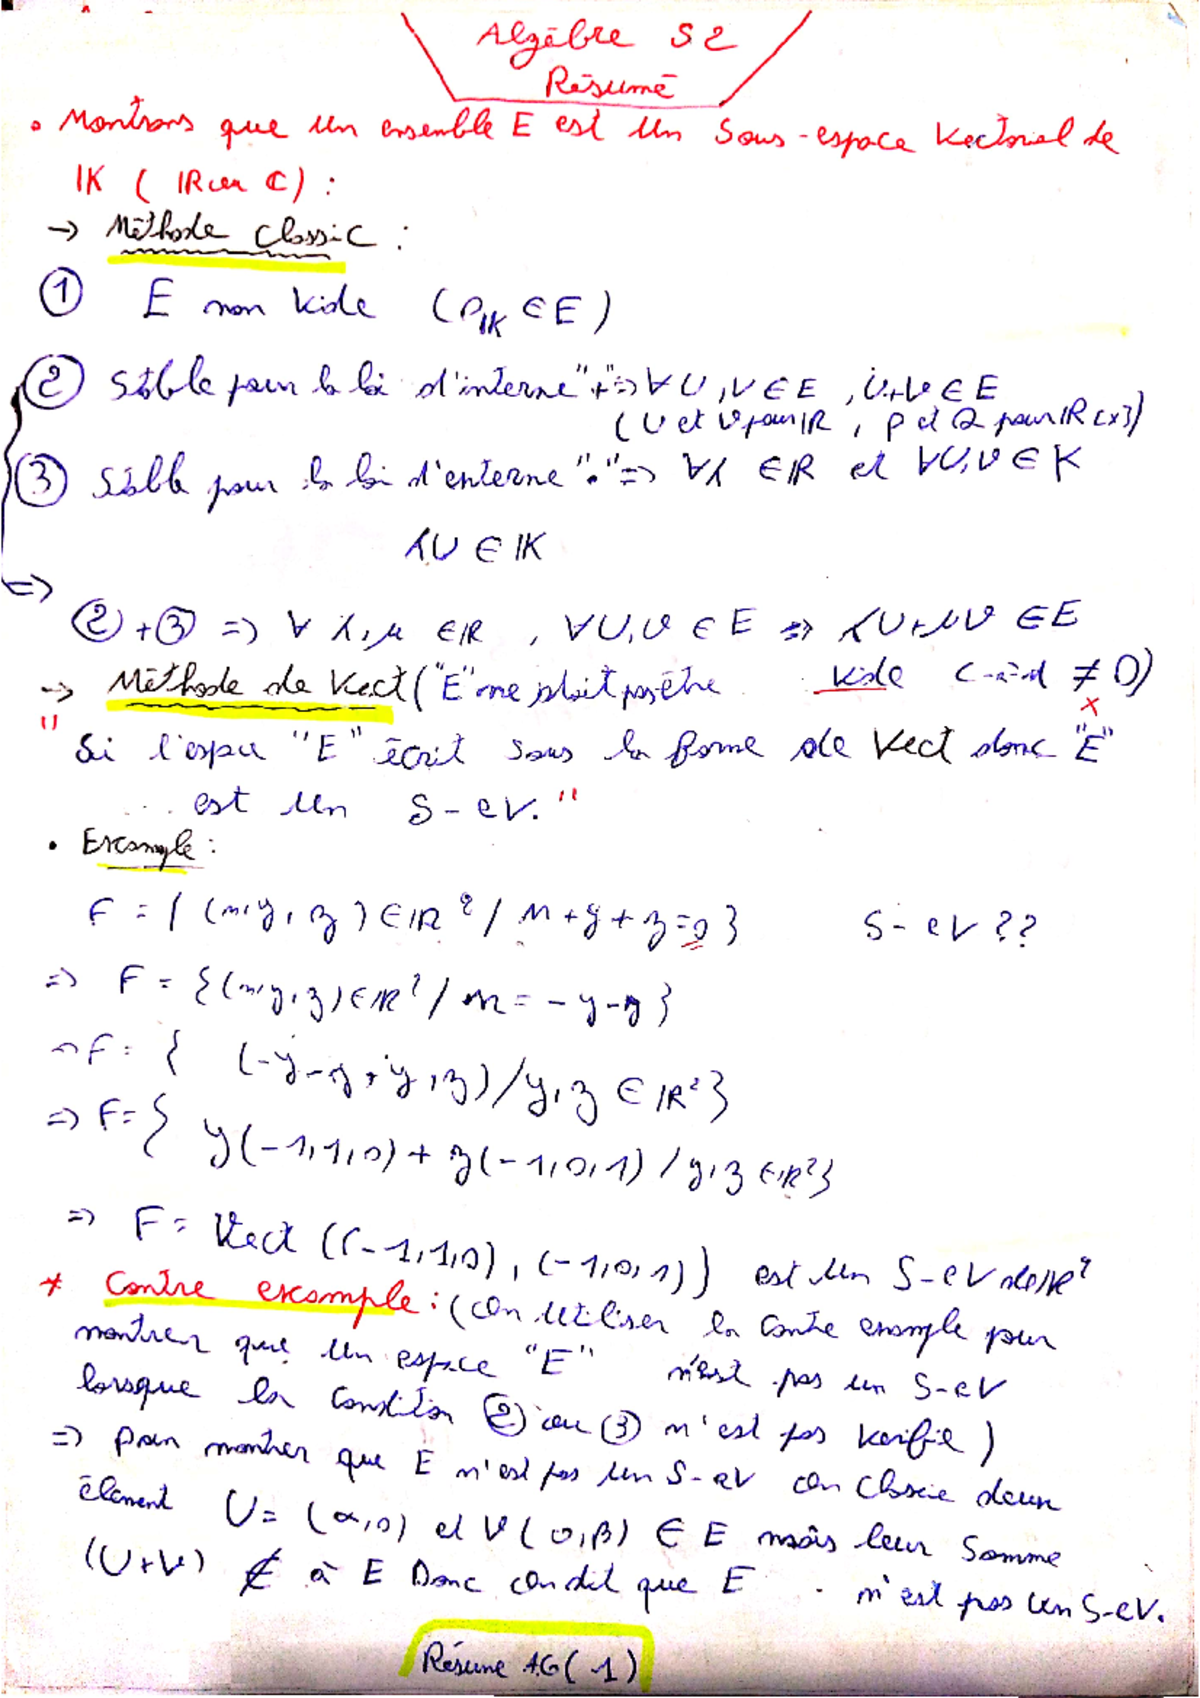 Algèbre S2
Résumé
• Montrons que un ensemble E est un Sous-espace Vectoriel de
IK ( IR ou C) :
→ Méthode Classic :
① E non vide (O_IK ∈ E)
② Stable pour la loi d'interne "+" => ∀ U, V ∈ E , U+V ∈ E
(U et V pour IR , P et Q pour IR[x])
③ Stable pour la loi d'enterne "." => ∀λ ∈ IR et ∀U, V ∈ K
λU ∈ IK
=>
② + ③ => ∀ λ, μ ∈ IR , ∀U, V ∈ E => λU+μV ∈ E
→ Méthode de Vect ("E" ne doit pas être vide c-à-d ≠ 0)
x
" Si l'espace "E" écrit sous la forme de Vect donc "E"
est un S-eV. "
• Example :
F = { (x, y, z) ∈ IR² / x + y + z = 0 } S-eV ??
=> F = { (x, y, z) ∈ IR² / x = -y-z }
=> F = { (-y-z, y, z) / y, z ∈ IR² }
=> F = { y(-1,1,0) + z(-1,0,1) / y, z ∈ IR² }
=> F = Vect ((-1,1,0), (-1,0,1)) est un S-eV de IR²
* Contre example : (On utiliser la Contre example pour
montrer que un espace "E" n'est pas un S-eV
lorsque la Condition ② ou ③ n'est pas Verifié)
=> pour montrer que E n'est pas un S-eV on Choisie deux
élement U = (α,0) et V (0,β) ∈ E mais leur Somme
(U+V) ∉ à E Donc on dit que E n'est pas un S-eV.
Résume AG (1)